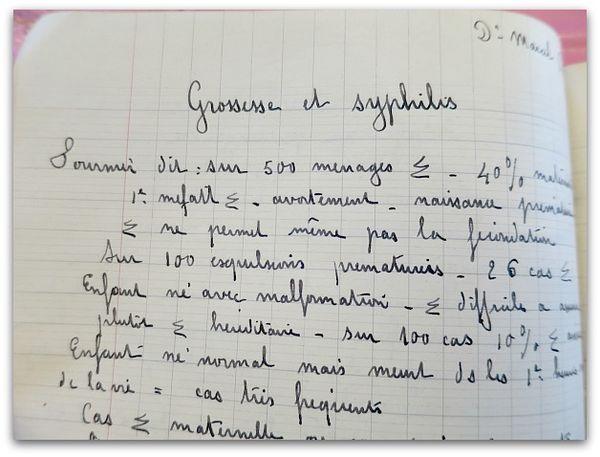 Dr Marcel
Grossesse et syphilis
Fournier dit : sur 500 menages Σ - 40%
1er mefait Σ - avortement - naissance prema
Σ ne permet même pas la fécondation
Sur 100 expulsions prematurées - 26 cas Σ
Enfant né avec malformation - Σ difficile a
plutôt Σ héréditaire - sur 100 cas 10% Σ
Enfant né normal mais meurt ds les 1er heures
de la vie = cas très frequents
Cas Σ maternelle